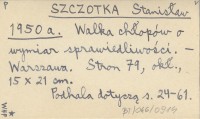 P
SZCZOTKA Stanisław
1950 a. Walka chłopów o
wymiar sprawiedliwości. –
Warszawa. Stron 79, okł.,
15 x 21 cm.
Podhala dotyczą s. 24-61.